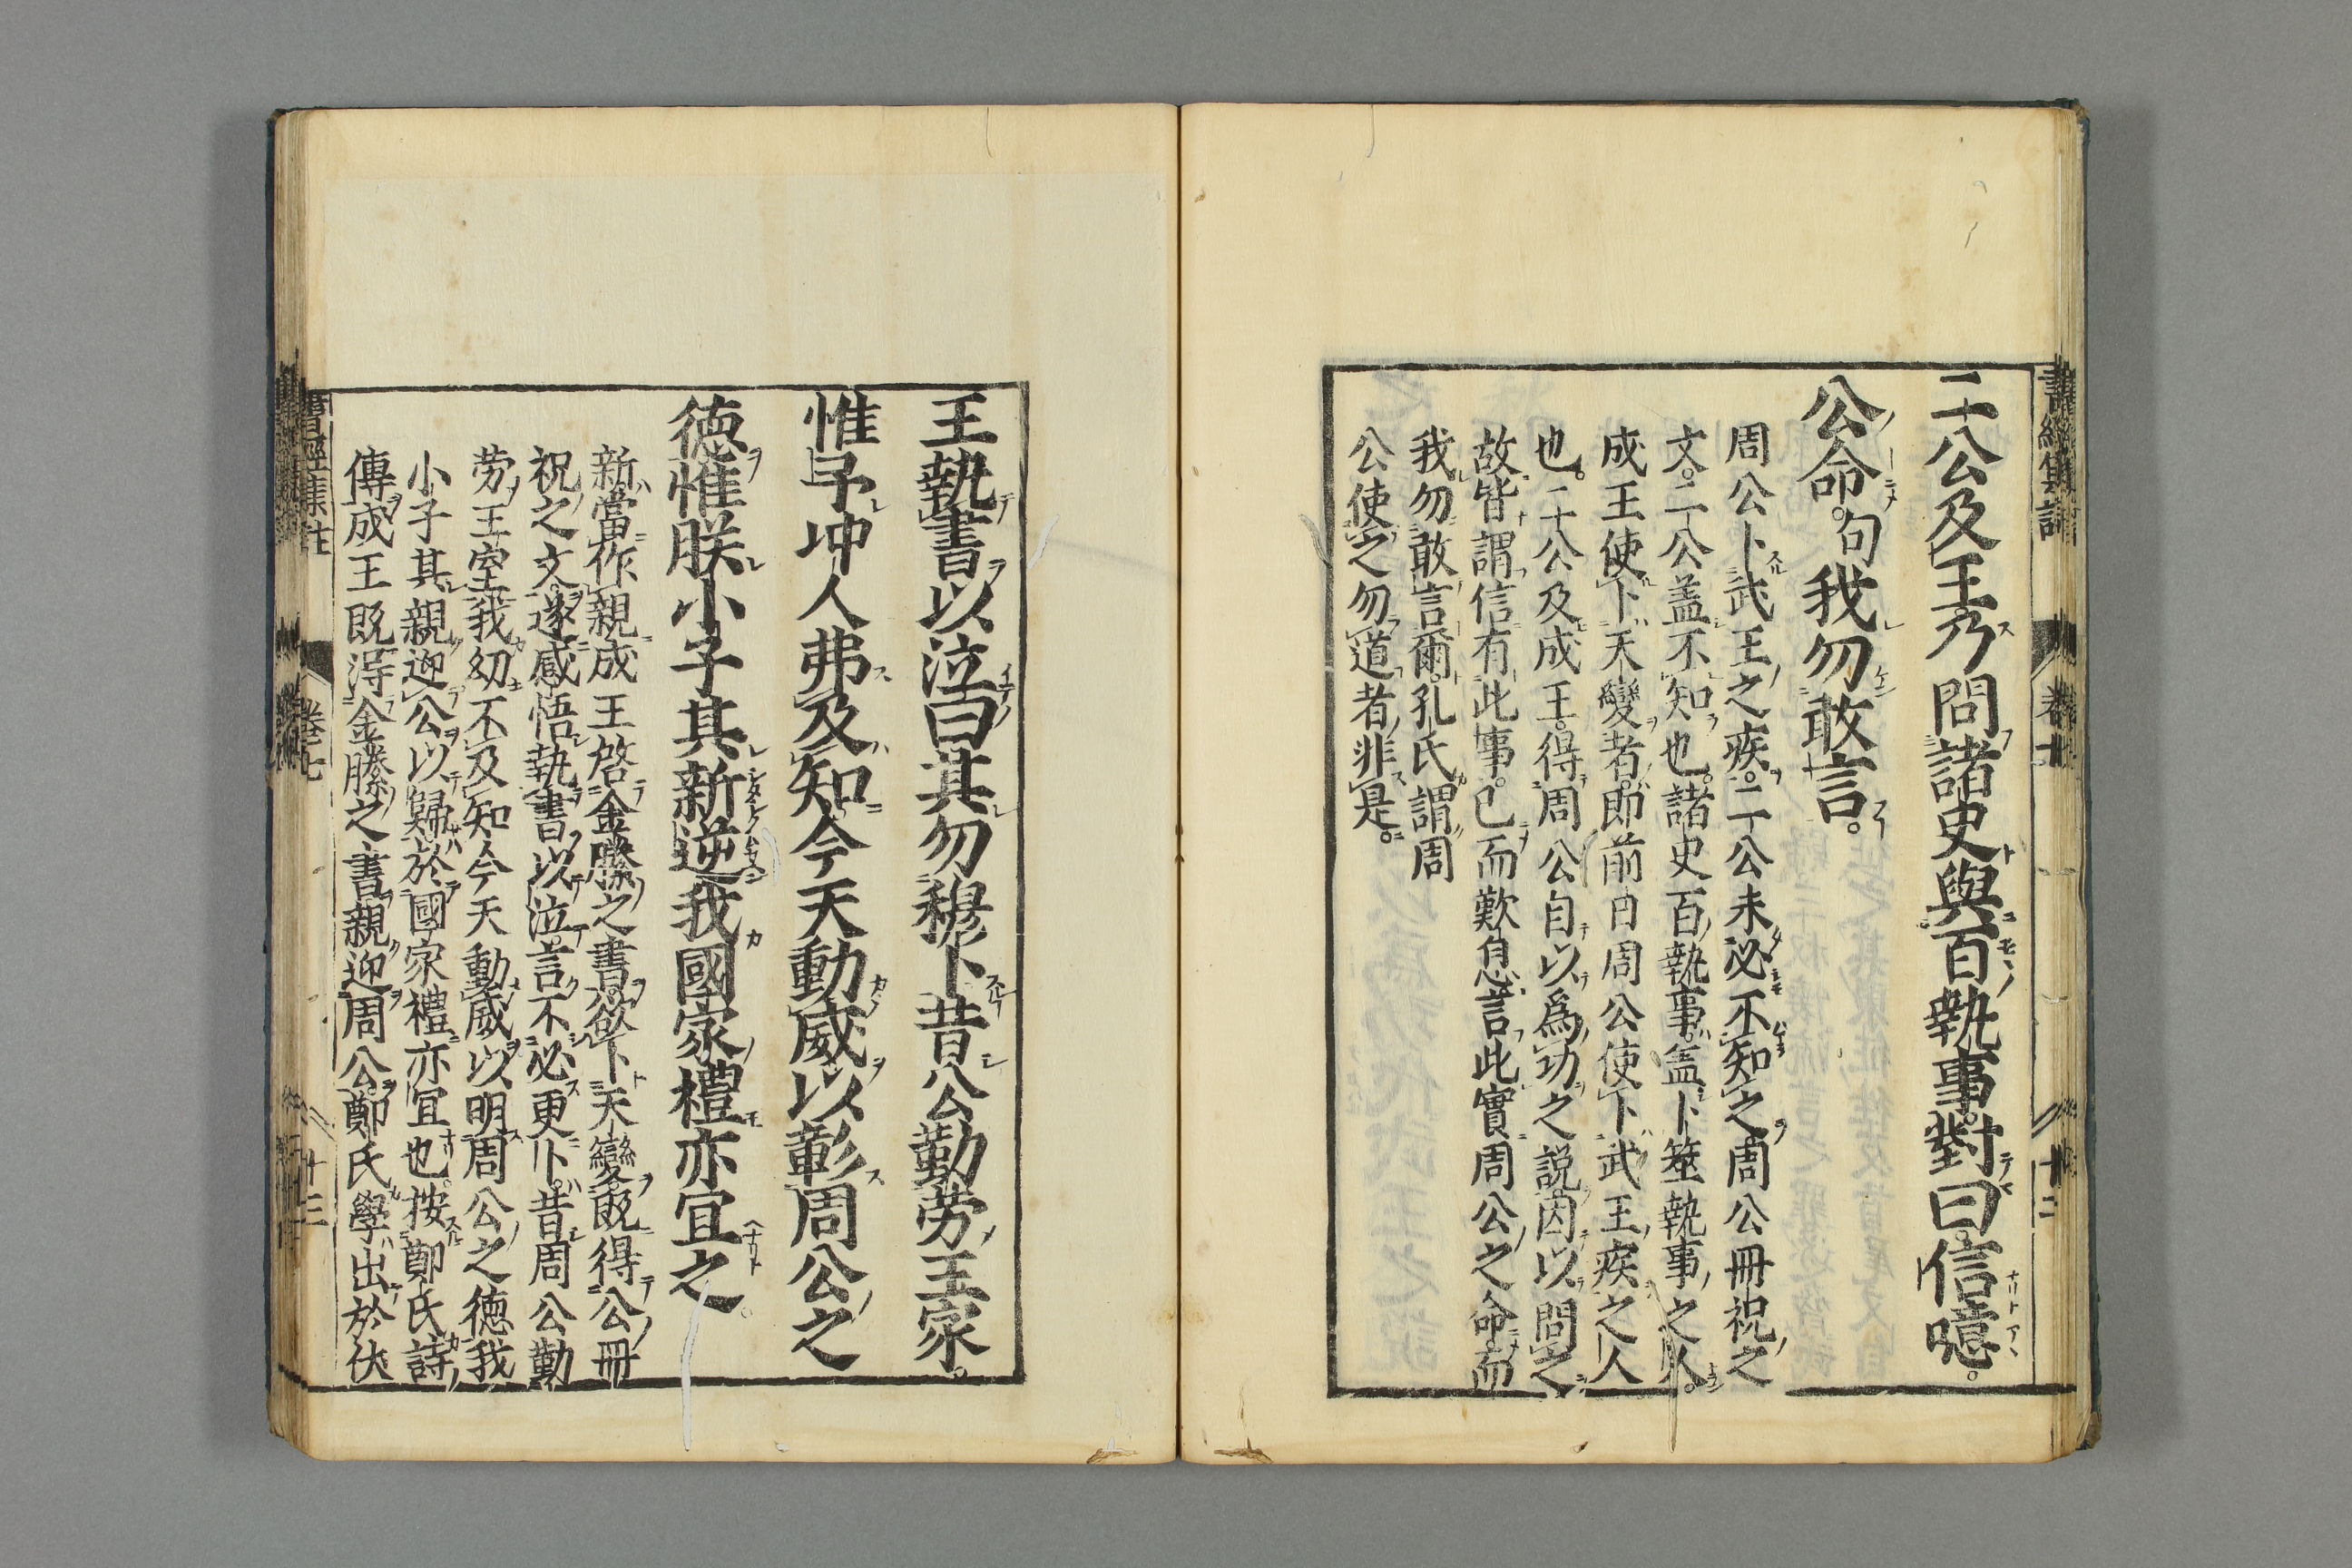 二公及王乃問諸史與百執事對曰信噫。
公命。句我勿敢言。
周公卜武王之疾。二公未必不知之周公冊祝之
文。二公盖不知也。諸史百執事盖卜筮執事之人。
成王使卜天變者。即前日周公使卜武王疾之人
也。二公及成王。得周公自以爲功之説因以問之
故皆謂信有此事。已而歎息言此實周公之命而
我勿敢言爾。孔氏謂周
公使之勿道者非是。
王執書以泣曰其勿穆卜昔公勤労王家。
惟予冲人弗及知今天動威以彰周公之
徳惟朕小子其新逆我國家禮亦宜之。
新當作親成王啓金縢之書欲卜天變既得公冊
祝之文。遂感悟執書以泣言不必更卜。昔周公勤
労王室我幼不及知今天動威以明周公之徳我
小子其親迎公以歸於國家禮亦宜也。按鄭氏詩
傳成王既得金縢之書親迎周公鄭氏學出於伏
書經集註
卷七
十三